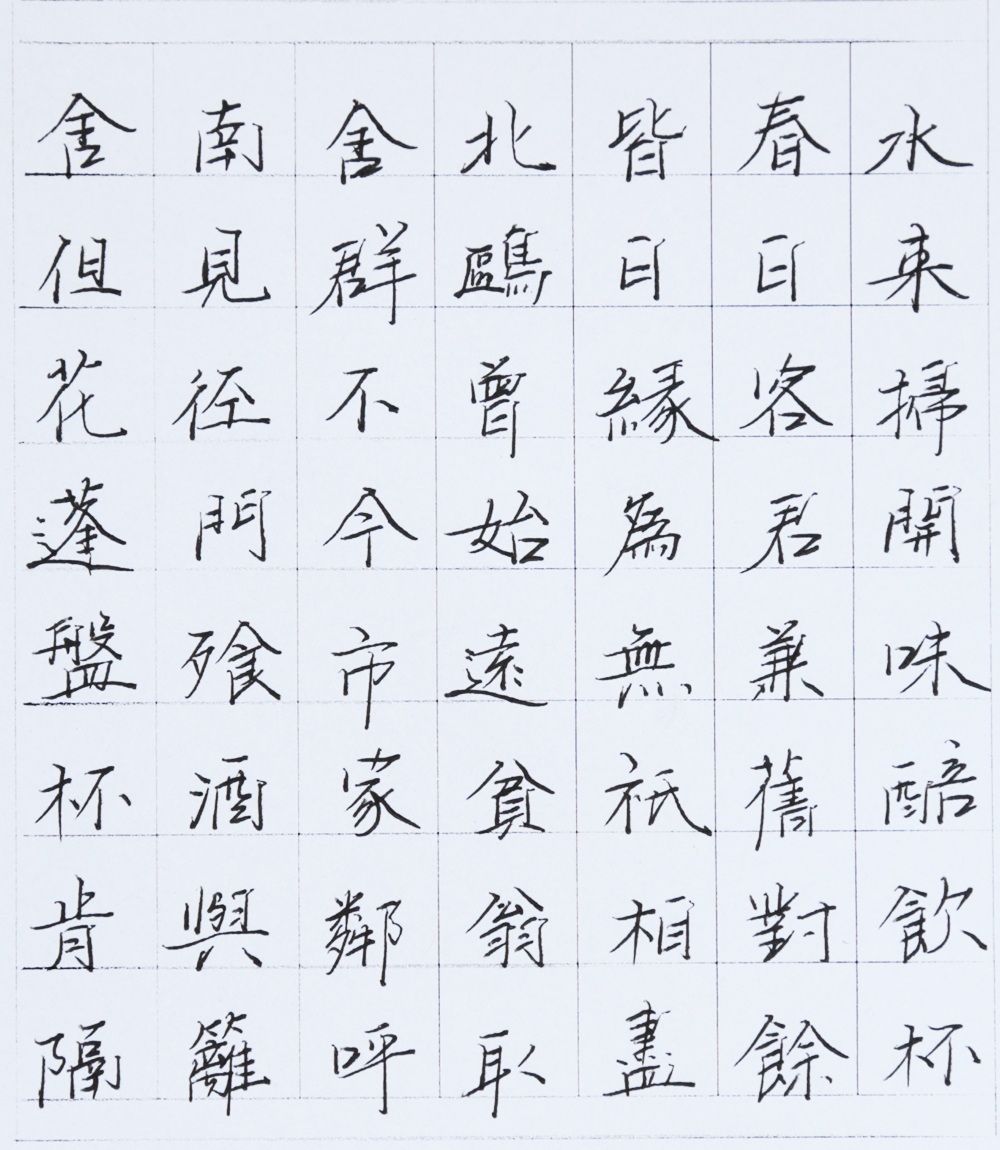 舍南舍北皆春水
但見群鷗日日来
花径不曾緣客掃
蓬門今始為君開
盤飧市遠無兼味
杯酒家貧祇舊醅
肯與鄰翁相對飲
隔籬呼取盡餘杯